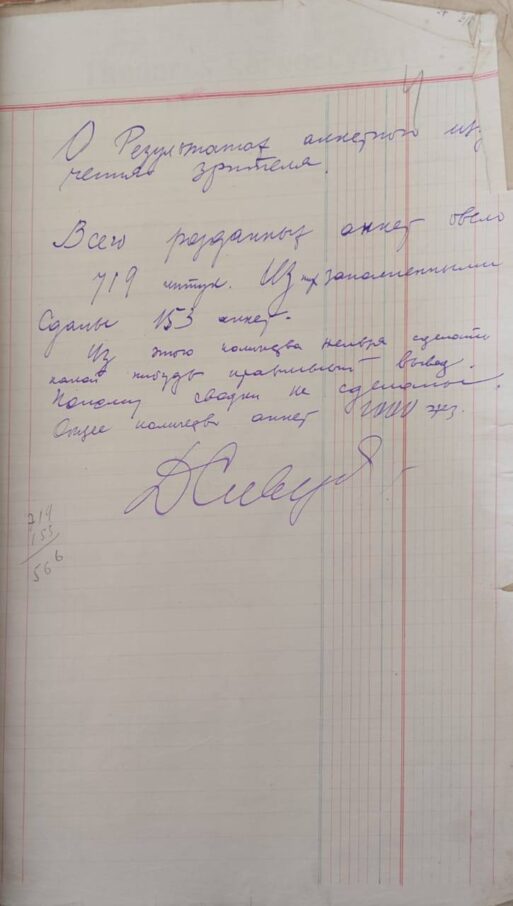 О Результатах анкетного из
чения зрителя.
Всего розданных анкет было
719 штук. Из них заполненными
Сдали 153 анкет.
Из этого количества нельзя сделать
какой нибудь правильный вывод.
Потому сводки не сделаны.
Общее количество анкет 1000 экз.
719
153
566